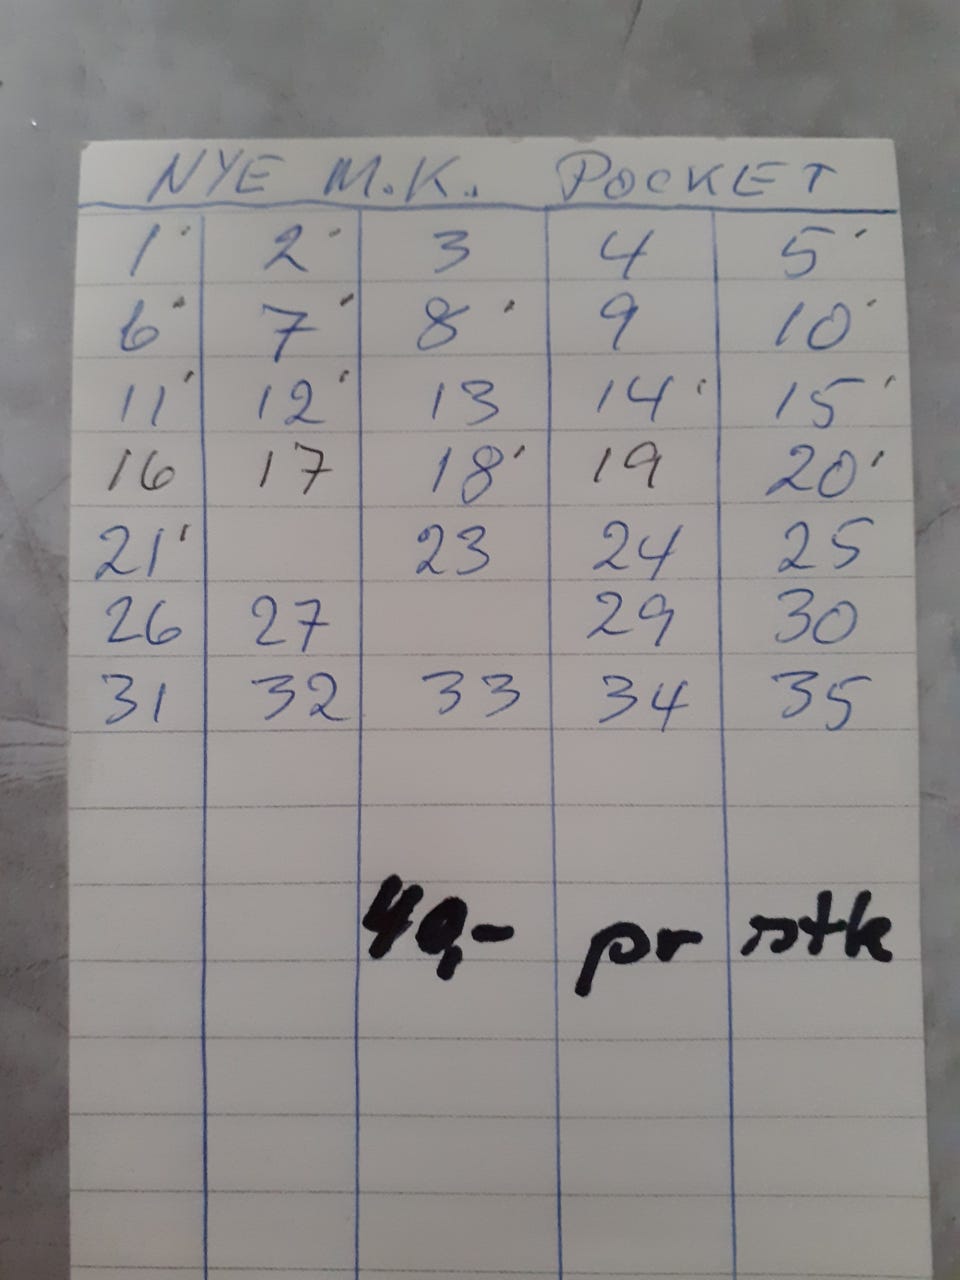 NYE M.K. POCKET
1' 2' 3 4 5'
6' 7' 8' 9 10'
11' 12' 13 14' 15'
16 17 18' 19 20'
21' 23 24 25
26 27 29 30
31 32 33 34 35
40,- pr stk